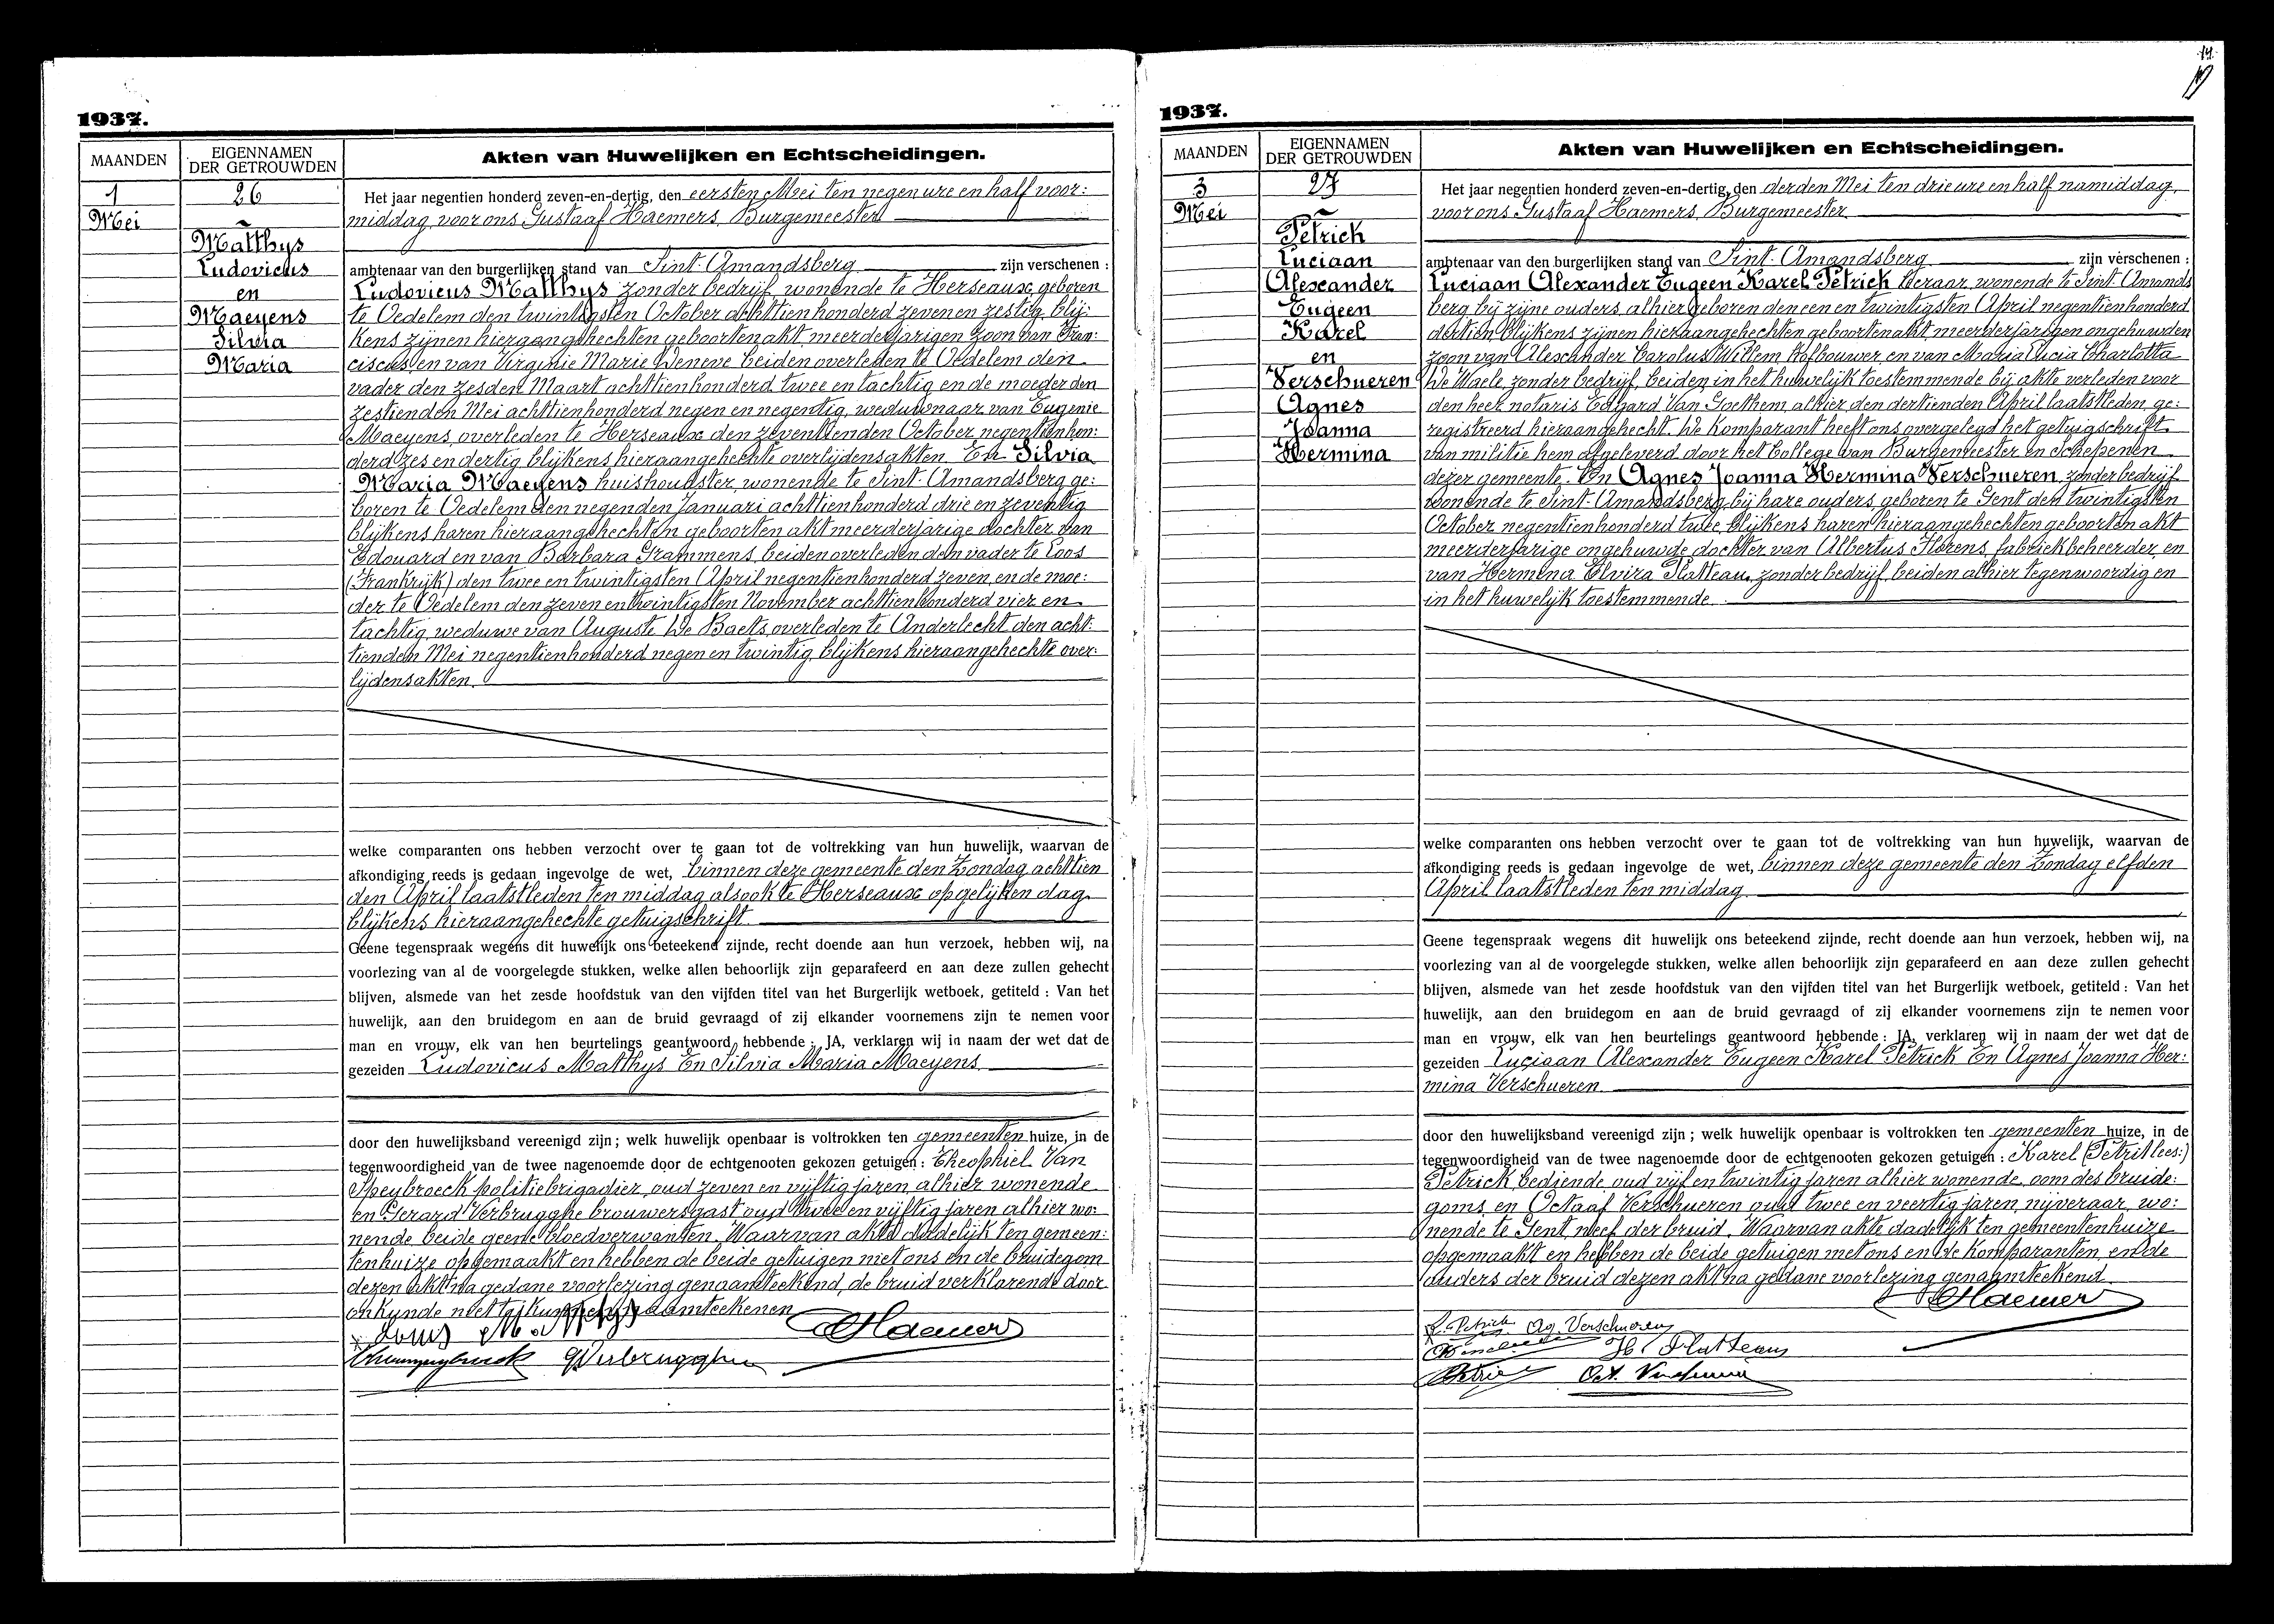 1937.
MAANDEN
EIGENNAMEN
DER GETROUWDEN
Akten van Huwelijken en Echtscheidingen.
1
Mei
26
Matthys
Ludovicus
en
Maeyens
Silvia
Maria
Het jaar negentien honderd zeven-en-dertig, den eersten Mei ten negen ure en half voor:
middag, voor ons Gustaaf Haemers, Burgemeester
ambtenaar van den burgerlijken stand van Sint-Amandsberg zijn verschenen :
Ludovicus Matthys zonder bedrijf, wonende te Herseaux, geboren
te Oedelem den twintigsten October achttienhonderd zeven en zestig, blij:
kens zijnen hieraangehechten geboortenakt, meerderjarigen zoon van Fran:
ciscus en van Virginie Marie Deneve beiden overleden te Oedelem den
vader den zesden Maart achttienhonderd twee en tachtig en de moeder den
zestienden Mei achttienhonderd negen en negentig, weduwnaar van Eugenie
Maeyens, overleden te Herseaux den zeventienden October negentienhon:
derd zes en dertig blijkens hieraangehechte overlijdensakten. En Silvia
Maria Maeyens huishoudster, wonende te Sint-Amandsberg ge:
boren te Oedelem den negenden Januari achttienhonderd drie en zeventig
blijkens haren hieraangehechten geboorten akt meerderjarige dochter van
Edouard en van Barbara Grammens, beiden overleden den vader te Loos
(Frankrijk) den twee en twintigsten April negentienhonderd zeven, en de moe:
der te Oedelem den zeven en twintigsten November achttienhonderd vier en
tachtig, weduwe van Auguste De Baets, overleden te Anderlecht den acht:
tienden Mei negentienhonderd negen en twintig, blijkens hieraangehechte over:
lijdensakten.
welke comparanten ons hebben verzocht over te gaan tot de voltrekking van hun huwelijk, waarvan de
afkondiging reeds is gedaan ingevolge de wet, binnen deze gemeente den Zondag achttien
den April laatstleden ten middag alsook te Herseaux op gelijken dag
blijkens hieraangehechte getuigschrift.
Geene tegenspraak wegens dit huwelijk ons beteekend zijnde, recht doende aan hun verzoek, hebben wij, na
voorlezing van al de voorgelegde stukken, welke allen behoorlijk zijn geparafeerd en aan deze zullen gehecht
blijven, alsmede van het zesde hoofdstuk van den vijfden titel van het Burgerlijk wetboek, getiteld : Van het
huwelijk, aan den bruidegom en aan de bruid gevraagd of zij elkander voornemens zijn te nemen voor
man en vrouw, elk van hen beurtelings geantwoord hebbende : JA, verklaren wij in naam der wet dat de
gezeiden Ludovicus Matthys En Silvia Maria Maeyens
door den huwelijksband vereenigd zijn ; welk huwelijk openbaar is voltrokken ten gemeenten huize, in de
tegenwoordigheid van de twee nagenoemde door de echtgenooten gekozen getuigen : Theophiel Van
Speybroeck politiebrigadier, oud zeven en vijftig jaren, alhier wonende
en Gerard Verbrugghe brouwersgast oud twee en vijftig jaren alhier wo:
nende, beide geene bloedverwanten. Waarvan akte dadelijk ten gemeen:
tenhuize opgemaakt en hebben de beide getuigen met ons en de bruidegom
dezen akt na gedane voorlezing genaamteekend, de bruid verklarende door
onkunde niet te kunnen naamteekenen
Louis Matthys
Haemers
GVerbrugghe
14
1937.
MAANDEN
EIGENNAMEN
DER GETROUWDEN
Akten van Huwelijken en Echtscheidingen.
3
Mei
27
Petrick
Luciaan
Alexander
Eugeen
Karel
en
Verschueren
Agnes
Joanna
Hermina
Het jaar negentien honderd zeven-en-dertig, den derden Mei ten drie ure en half namiddag,
voor ons Gustaaf Haemers, Burgemeester
ambtenaar van den burgerlijken stand van Sint-Amandsberg zijn verschenen :
Luciaan Alexander Eugeen Karel Petrick leraar, wonende te Sint-Amands
berg bij zijne ouders, alhier geboren den een en twintigsten April negentienhonderd
dertien, blijkens zijnen hieraangehechten geboortenakt, meerderjarigen ongehuwden
zoon van Alexander Carolus Willem, hofbouwer, en van Maria Lucia Charlotta
De Waele, zonder bedrijf, beiden in het huwelijk toestemmende bij akte verleden voor
den heer notaris Edgard Van Goethem, alhier den dertienden April laatstleden, ge:
registreerd hieraangehecht. De komparant heeft ons overgelegd het getuigschrift
van militie hem afgeleverd door het College van Burgemeester en Schepenen
dezer gemeente. En Agnes Joanna Hermina Verschueren, zonder bedrijf
wonende te Sint-Amandsberg, bij hare ouders, geboren te Gent den twintigsten
October negentienhonderd twee, blijkens haren hieraangehechten geboorten akt
meerderjarige ongehuwde dochter van Albertus Florens, fabriekbeheerder, en
van Hermina Elvira Platteau, zonder bedrijf, beiden alhier tegenwoordig en
in het huwelijk toestemmende.
welke comparanten ons hebben verzocht over te gaan tot de voltrekking van hun huwelijk, waarvan de
afkondiging reeds is gedaan ingevolge de wet, binnen deze gemeente den Zondag elfden
April laatstleden ten middag.
Geene tegenspraak wegens dit huwelijk ons beteekend zijnde, recht doende aan hun verzoek, hebben wij, na
voorlezing van al de voorgelegde stukken, welke allen behoorlijk zijn geparafeerd en aan deze zullen gehecht
blijven, alsmede van het zesde hoofdstuk van den vijfden titel van het Burgerlijk wetboek, getiteld : Van het
huwelijk, aan den bruidegom en aan de bruid gevraagd of zij elkander voornemens zijn te nemen voor
man en vrouw, elk van hen beurtelings geantwoord hebbende : JA, verklaren wij in naam der wet dat de
gezeiden Luciaan Alexander Eugeen Karel Petrick En Agnes Joanna Her:
mina Verschueren
door den huwelijksband vereenigd zijn ; welk huwelijk openbaar is voltrokken ten gemeenten huize, in de
tegenwoordigheid van de twee nagenoemde door de echtgenooten gekozen getuigen : Karel (Petrit lees:)
Petrick, bediende oud vijf en twintig jaren alhier wonende, oom des bruide:
goms, en Octaaf Verschueren oud twee en veertig jaren, nijveraar, wo:
nende te Gent, neef der bruid. Waarvan akte dadelijk ten gemeentenhuize
opgemaakt en hebben de beide getuigen met ons en de komparanten, en de
ouders der bruid dezen akt na gedane voorlezing genaamteekend.
Haemers
L. Petrick Ag. Verschueren
H. Platteau
Oct. Verschueren